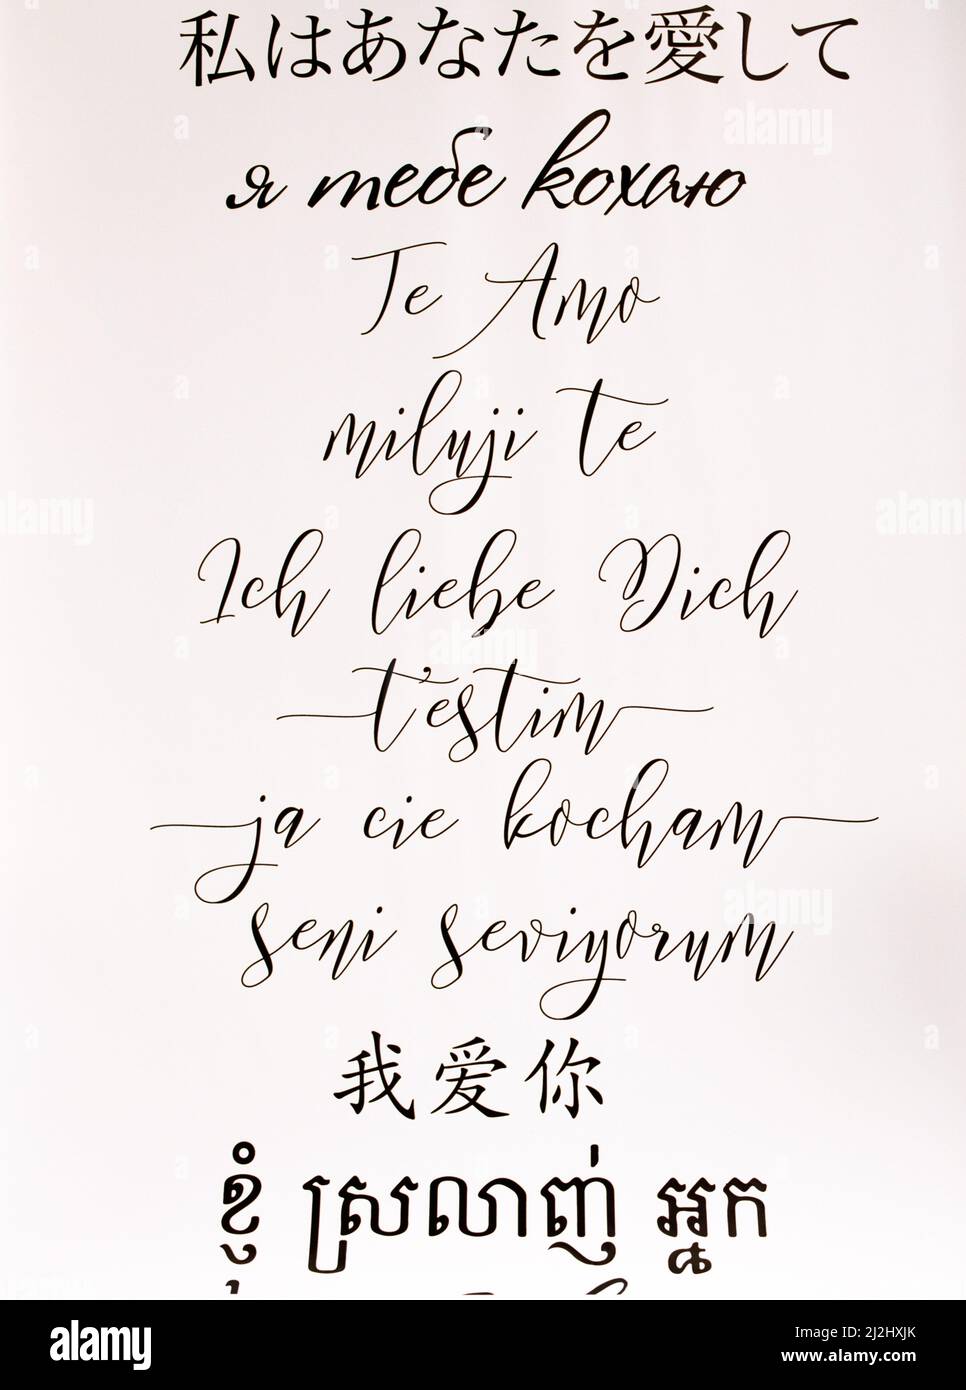 私はあなたを愛して
я тебе кохаю
Te Amo
miluji te
Ich liebe Dich
t'estim
ja cie kocham
seni seviyorum
我爱你
ខ្ញុំ ស្រលាញ់ អ្នក
alamy
Image ID: 2J2HXJK
www.alamy.com